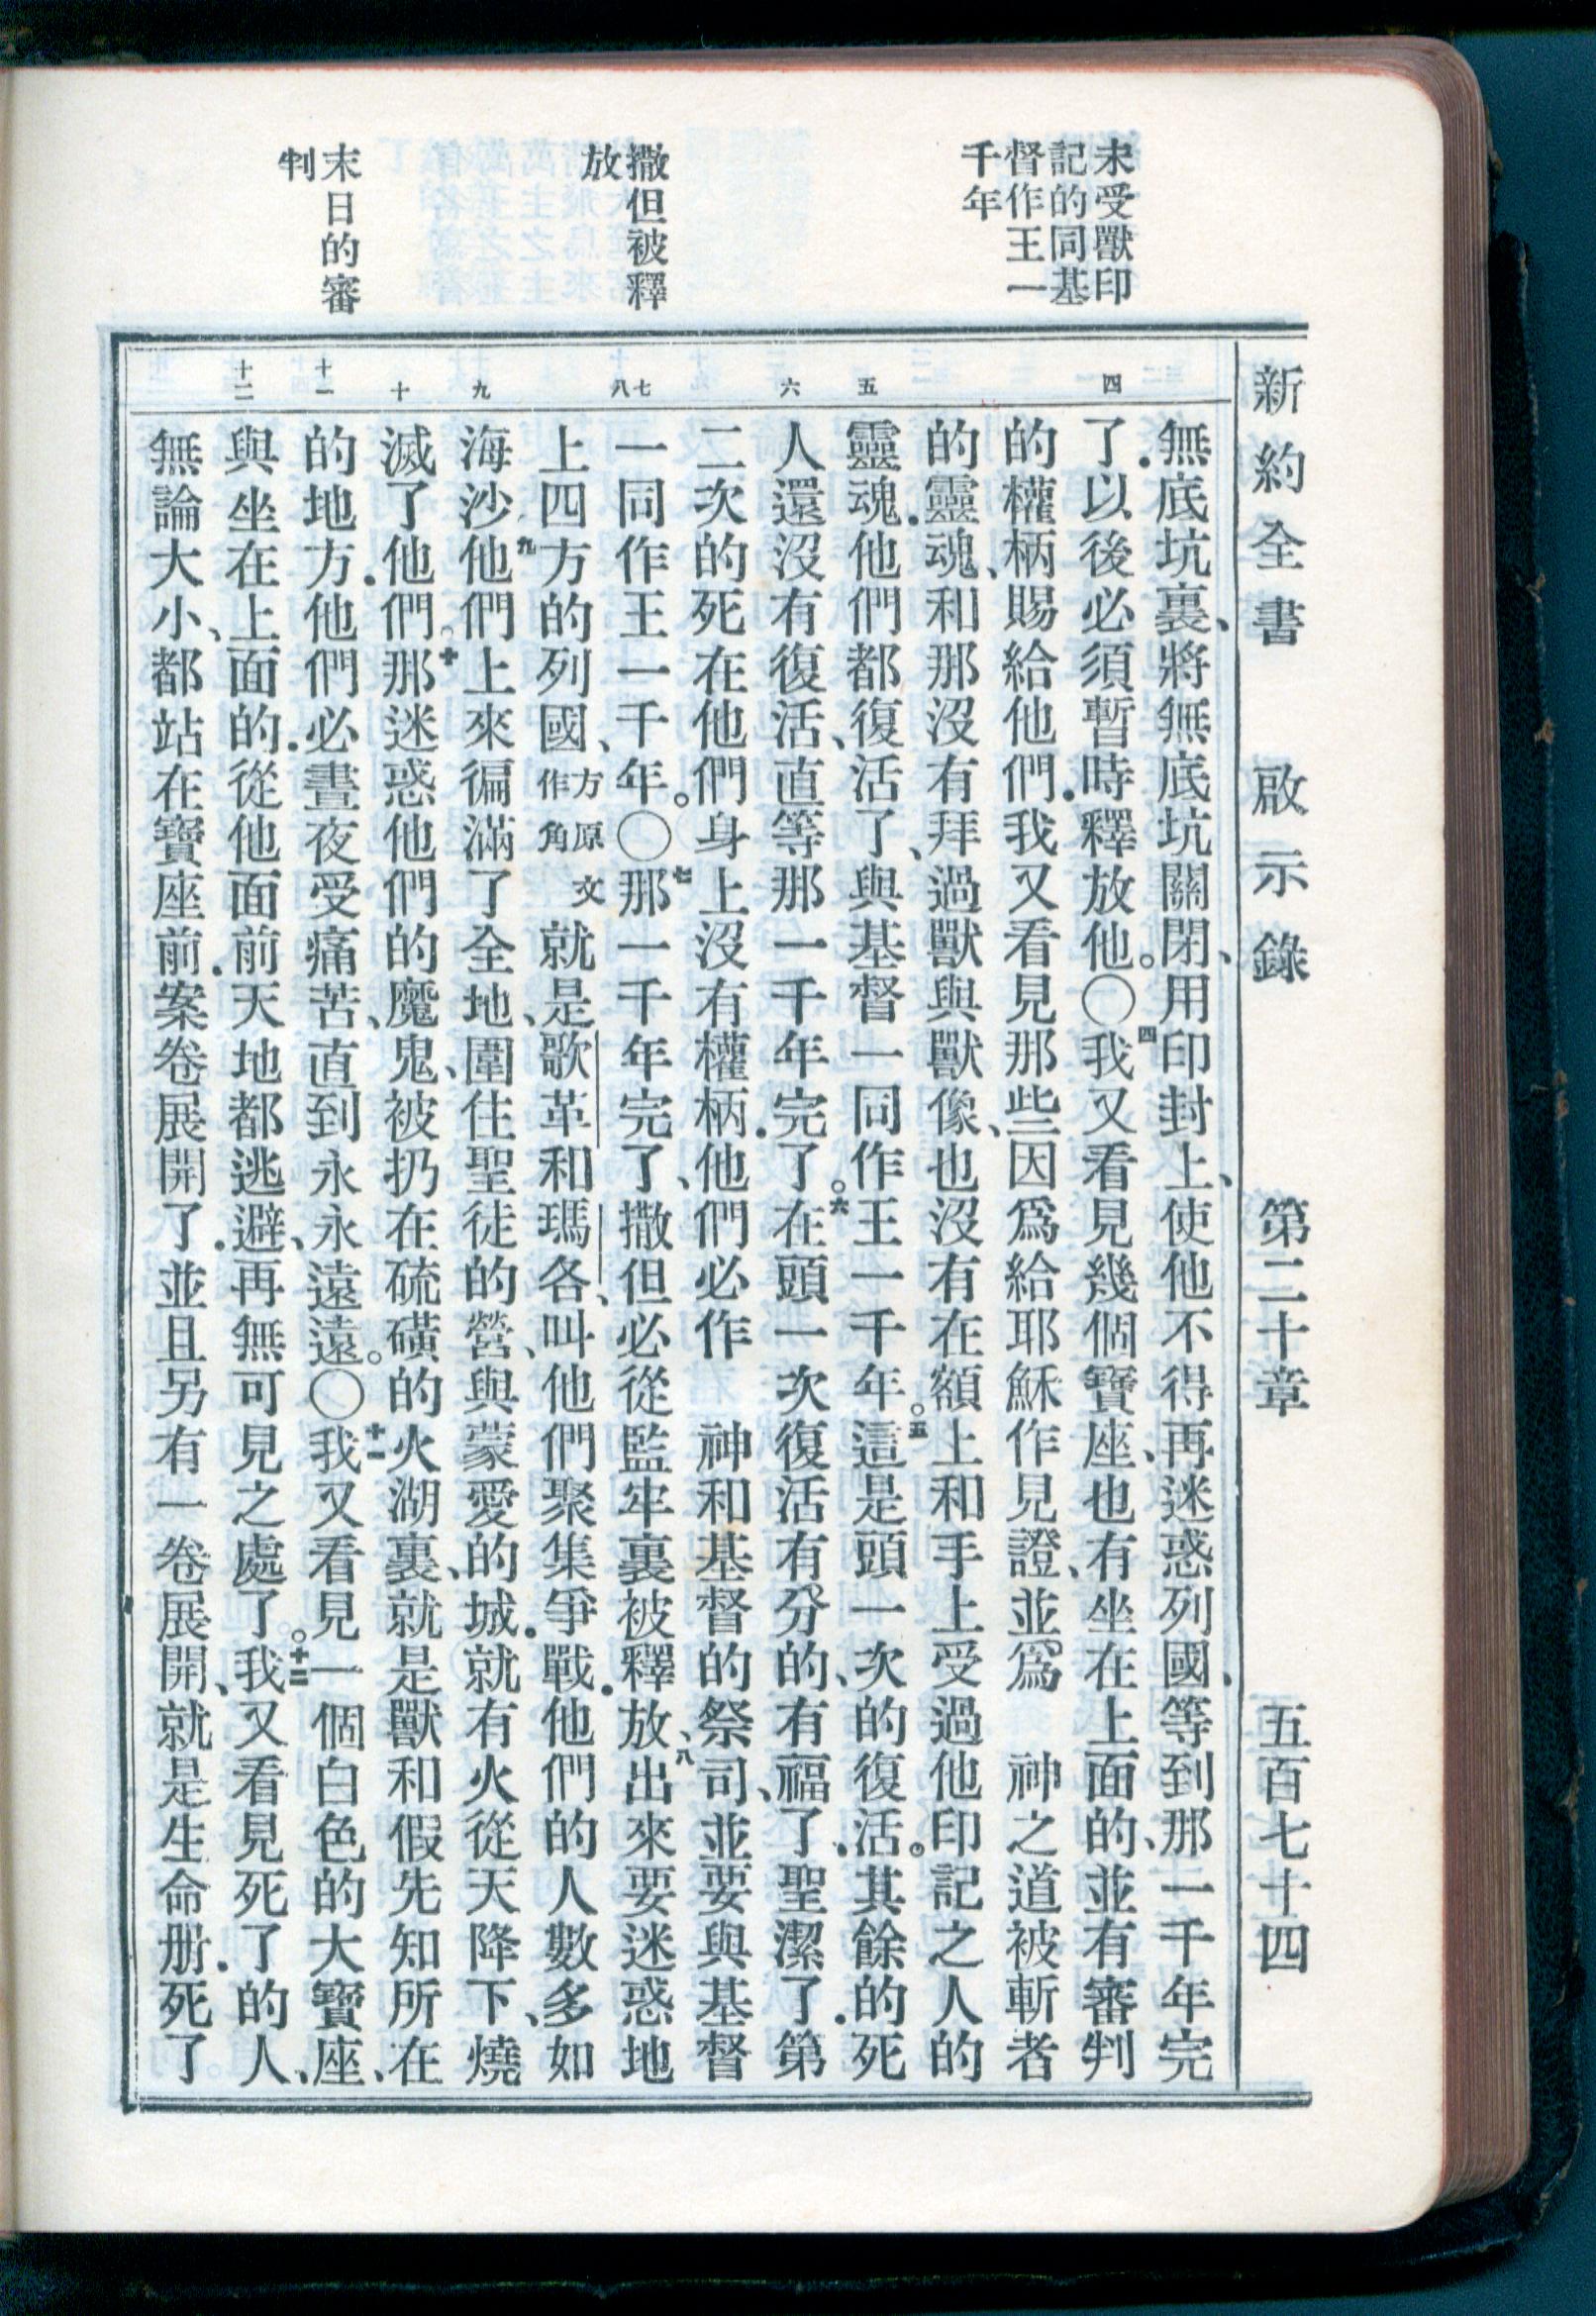 新約全書 啟示錄 第二十章 五百七十四
未受獸印
記的同基
督作王一
千年
撒但被釋
放
末日的審
判
四 五 六 七 八 九 十 十一 十二
無底坑裏、將無底坑關閉、用印封上、使他不得再迷惑列國、等到那一千年完
了．以後必須暫時釋放他。〇四我又看見幾個寶座、也有坐在上面的、並有審判
的權柄賜給他們．我又看見那些因爲給耶穌作見證、並爲 神之道被斬者
的靈魂、和那沒有拜過獸與獸像、也沒有在額上和手上受過他印記之人的
靈魂．他們都復活了、與基督一同作王一千年。五這是頭一次的復活。其餘的死
人還沒有復活、直等那一千年完了。六在頭一次復活有分的、有福了．聖潔了．第
二次的死在他們身上沒有權柄．他們必作 神和基督的祭司、並要與基督
一同作王一千年。〇七那一千年完了、撒但必從監牢裏被釋放、八出來要迷惑地
上四方的列國、方原文作角就是歌革和瑪各、叫他們聚集爭戰．他們的人數多如
海沙．九他們上來徧滿了全地、圍住聖徒的營、與蒙愛的城．就有火從天降下、燒
滅了他們。十那迷惑他們的魔鬼、被扔在硫磺的火湖裏、就是獸和假先知所在
的地方．他們必晝夜受痛苦、直到永永遠遠。〇十一我又看見一個白色的大寶座、
與坐在上面的．從他面前天地都逃避、再無可見之處了。十二我又看見死了的人、
無論大小、都站在寶座前．案卷展開了．並且另有一卷展開、就是生命册．死了